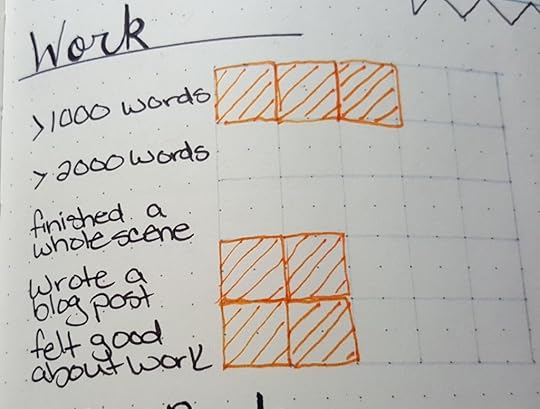 Work
>1000 words
>2000 words
finished a
whole scene
wrote a
blog post
felt good
about work